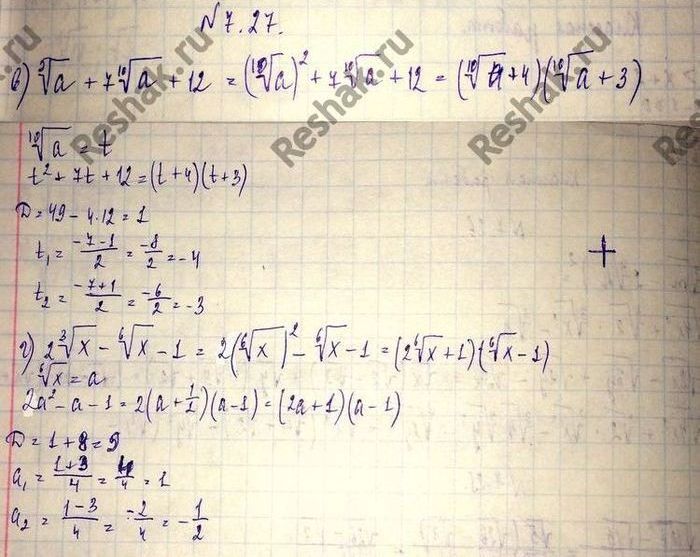 №7.27.
в) ⁵√a + 7 ¹⁰√a + 12 = (¹⁰√a)² + 7 ¹⁰√a + 12 = (¹⁰√a + 4)(¹⁰√a + 3)
¹⁰√a = t
t² + 7t + 12 = (t + 4)(t + 3)
D = 49 - 4·12 = 1
t₁ = (-7-1)/2 = -8/2 = -4
t₂ = (-7+1)/2 = -6/2 = -3
г) 2 ³√x - ⁶√x - 1 = 2(⁶√x)² - ⁶√x - 1 = (2 ⁶√x + 1)(⁶√x - 1)
⁶√x = a
2a² - a - 1 = 2(a + 1/2)(a - 1) = (2a + 1)(a - 1)
D = 1 + 8 = 9
a₁ = (1+3)/4 = 4/4 = 1
a₂ = (1-3)/4 = -2/4 = -1/2
Reshak.ru
Reshak.ru
Reshak.ru
Reshak.ru
Reshak.ru
Reshak.ru